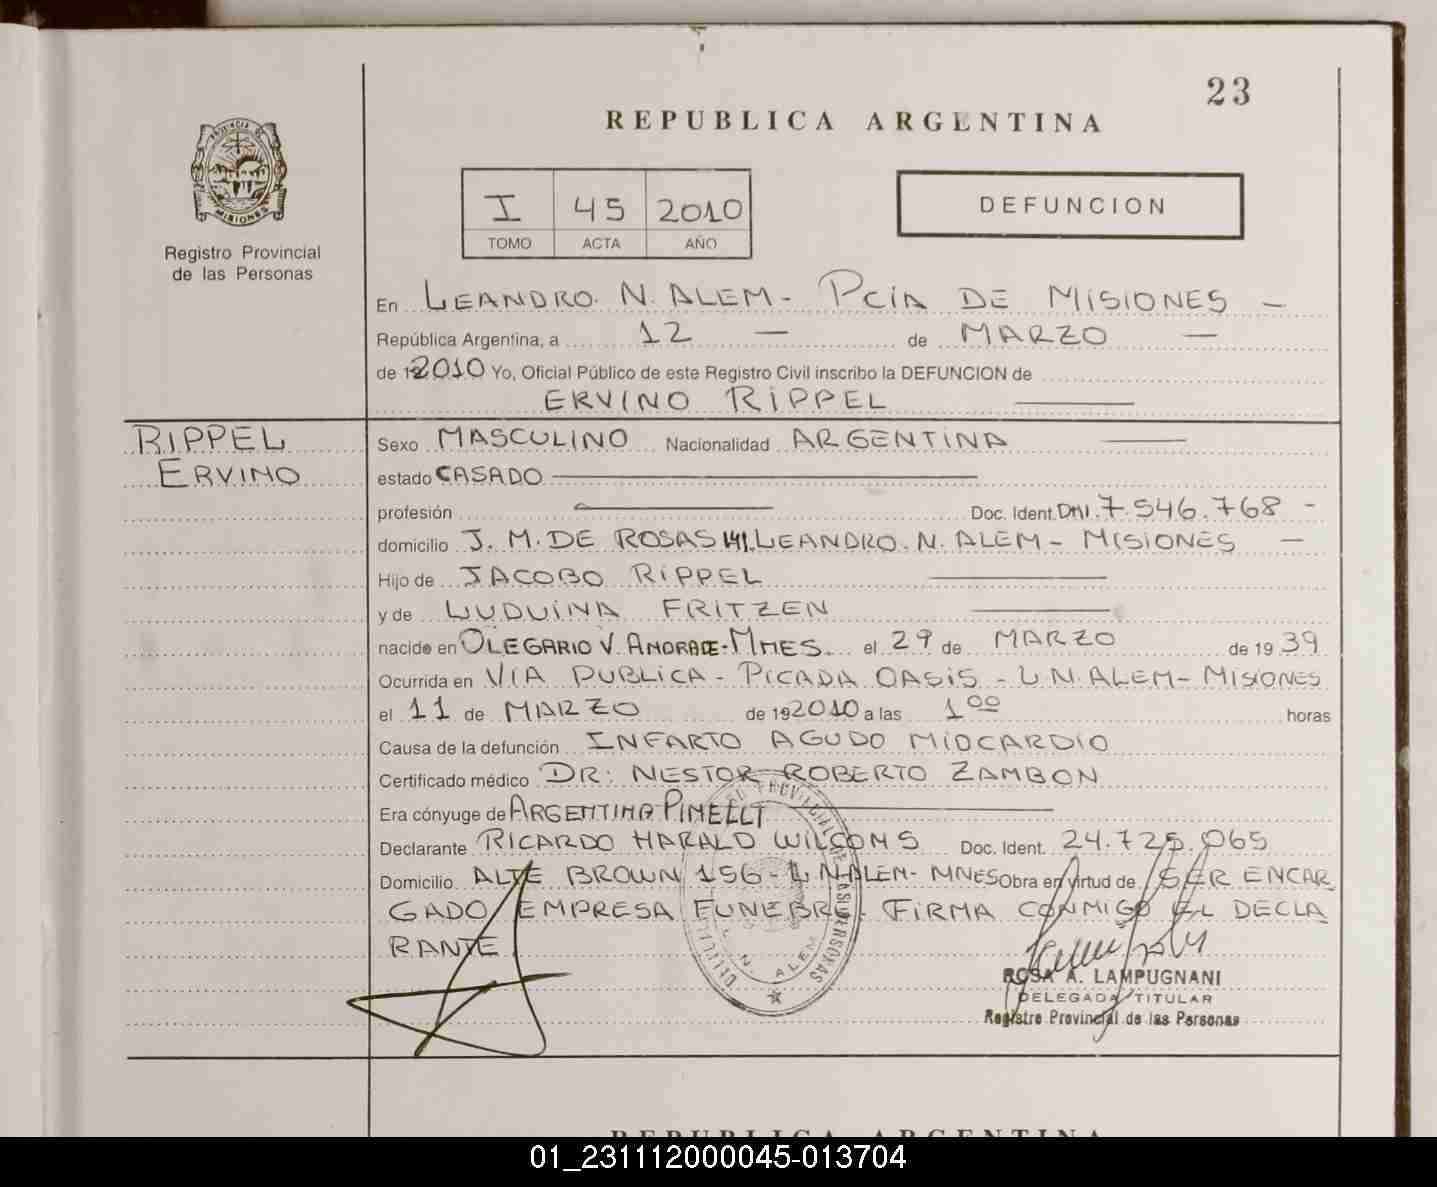 23
REPUBLICA ARGENTINA
PROVINCIA DE
MISIONES
Registro Provincial
de las Personas
I 45 2010
TOMO ACTA AÑO
DEFUNCION
En LEANDRO. N. ALEM - PCIA DE MISIONES -
República Argentina, a 12 - de MARZO -
de 2010 Yo, Oficial Público de este Registro Civil inscribo la DEFUNCION de
ERVINO RIPPEL
RIPPEL
ERVINO
Sexo MASCULINO Nacionalidad ARGENTINA
estado CASADO
profesión Doc. Ident. DNI. 7.546.768 -
domicilio J. M. DE ROSAS 141. LEANDRO. N. ALEM - MISIONES -
Hijo de JACOBO RIPPEL
y de LUDUINA FRITZEN
nacido en OLEGARIO V. ANDRADE - MNES. el 29 de MARZO de 1939
Ocurrida en VIA PUBLICA - PICADA OASIS - L N. ALEM - MISIONES
el 11 de MARZO de 2010 a las 1 00 horas
Causa de la defunción INFARTO AGUDO MIOCARDIO
Certificado médico DR: NESTOR ROBERTO ZAMBON
Era cónyuge de ARGENTINA PINELLI
Declarante RICARDO HARALD Doc. Ident. 24.725.065
Domicilio ALTE BROWN 156 - L. N. ALEM - MNES Obra en virtud de SER ENCAR
GADO EMPRESA FUNEBRE. FIRMA CONMIGO EL DECLA
RANTE
L. N. ALEM
ROSA A. LAMPUGNANI
DELEGADA TITULAR
Registro Provincial de las Personas
REPUBLICA ARGENTINA
01_231112000045-013704